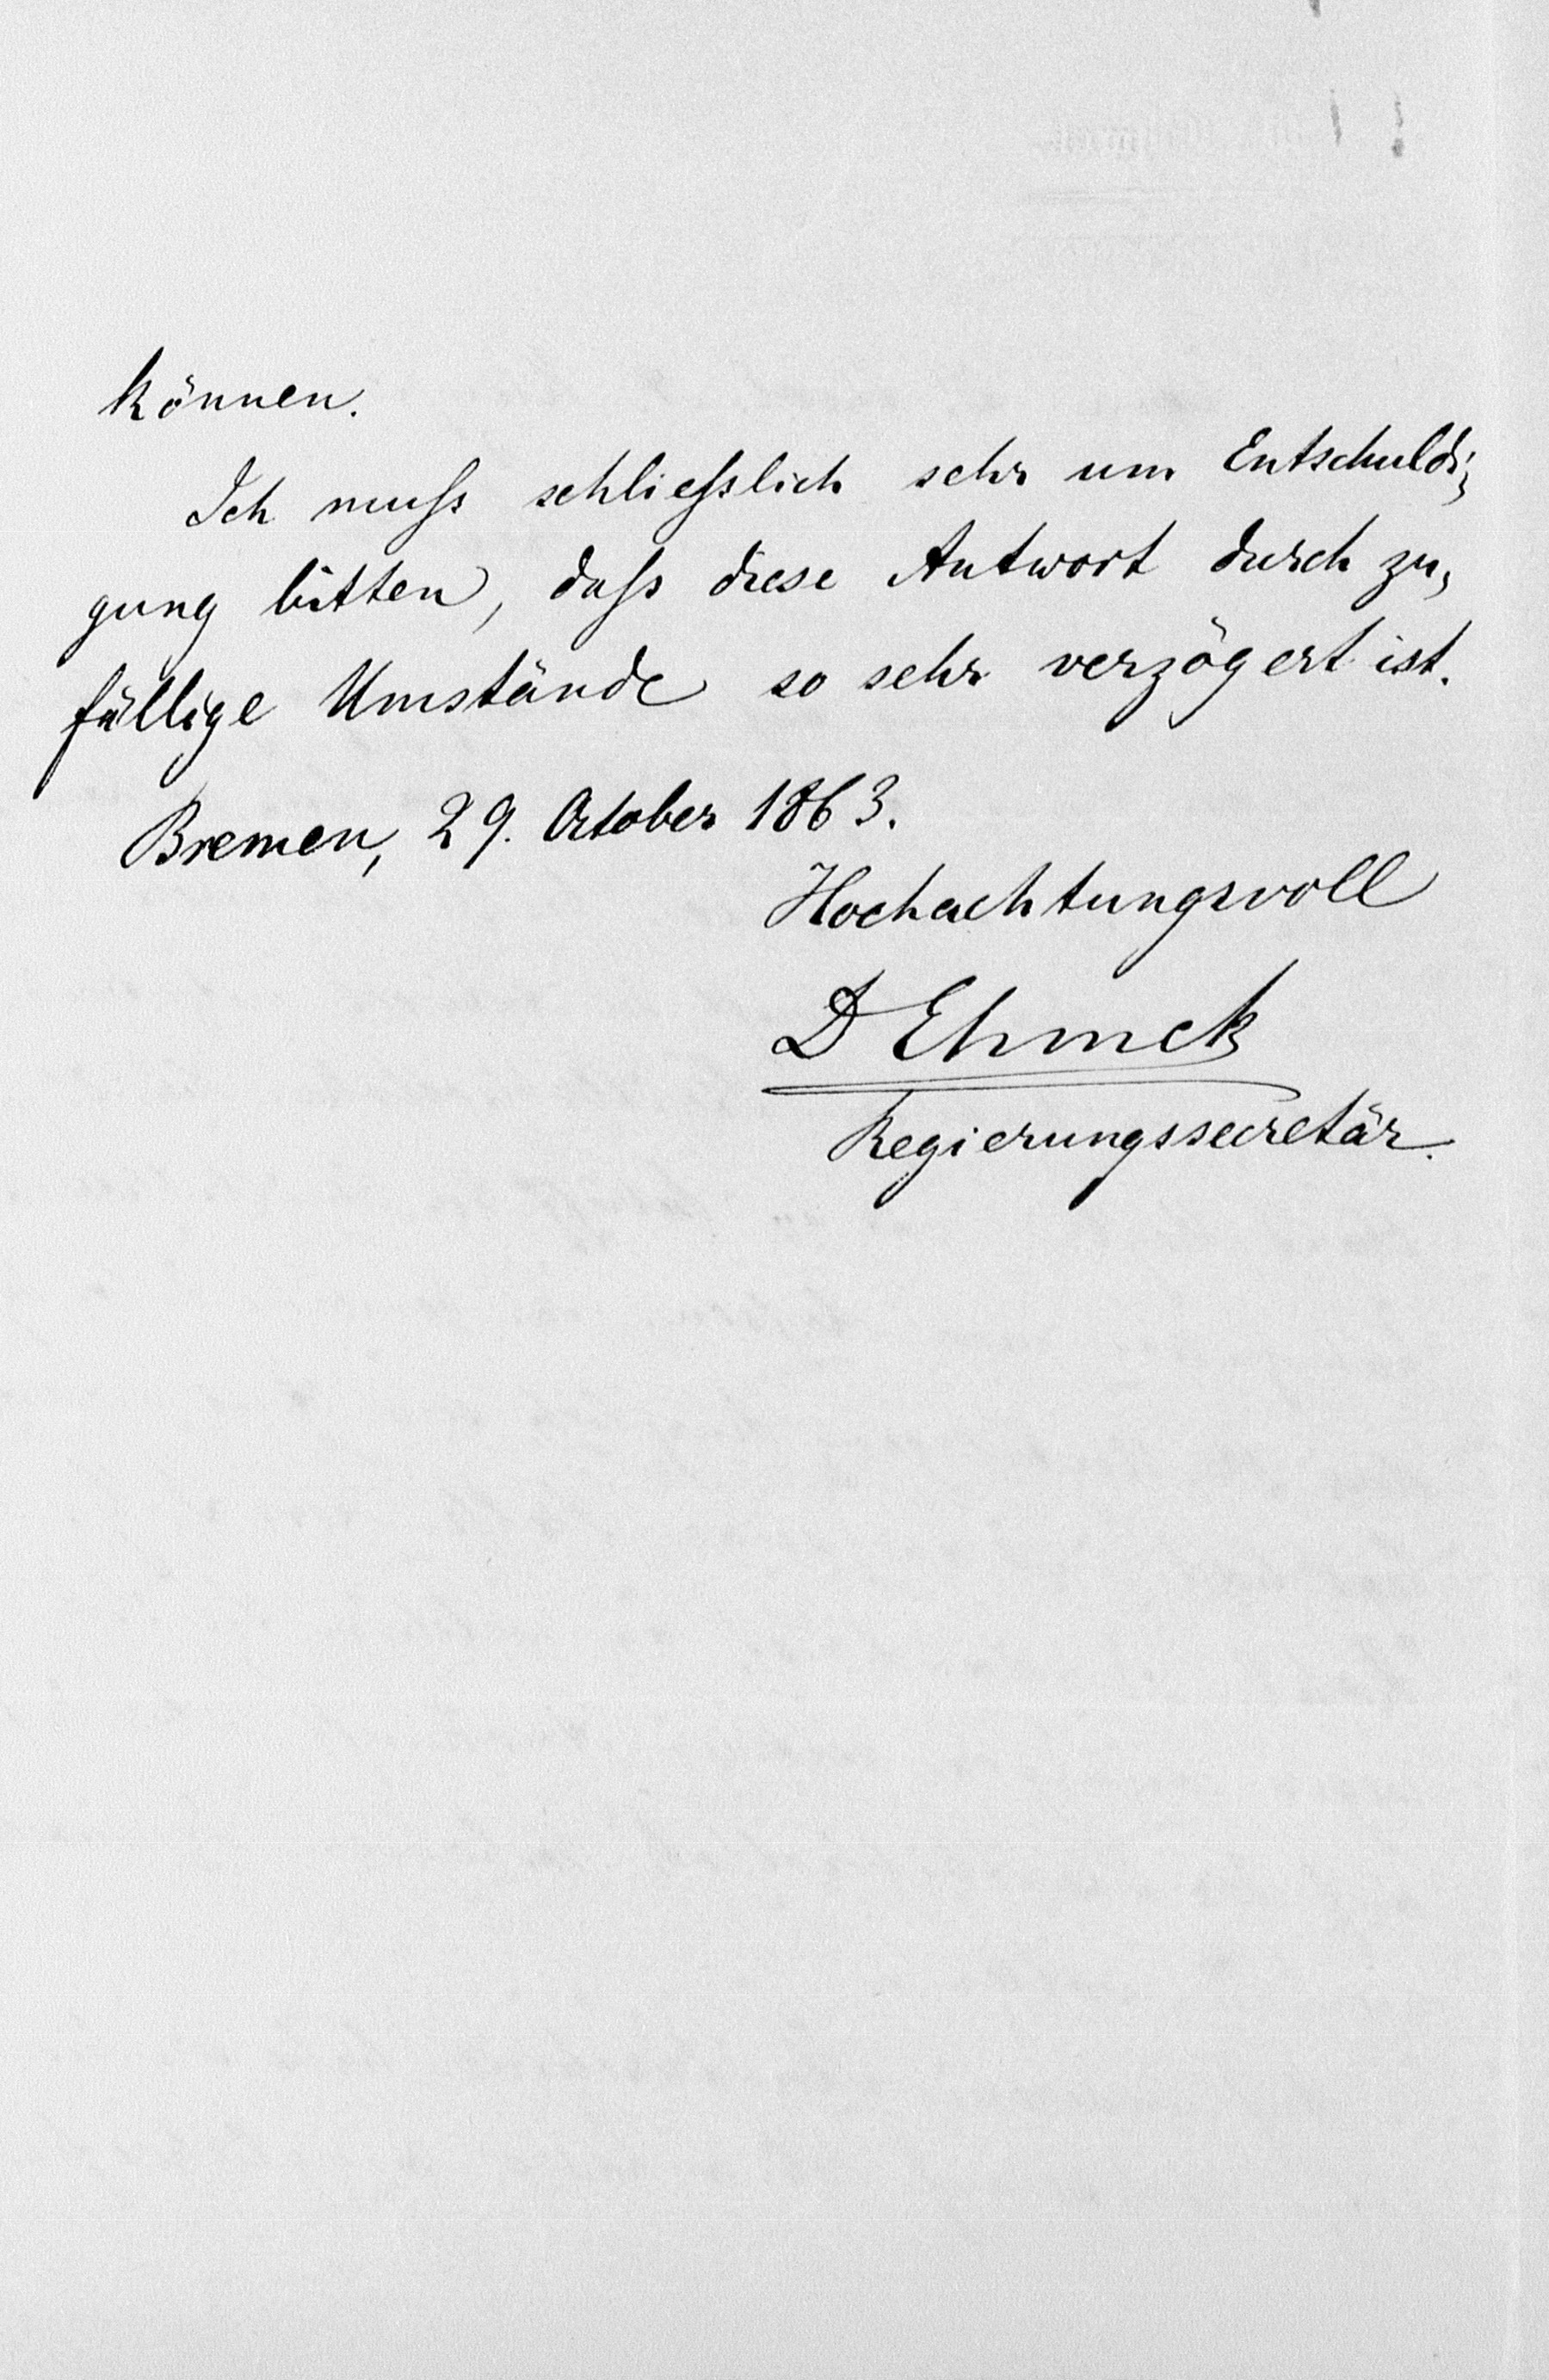 können.
Ich muſs schlieſslich sehr um Entschuldi„
gung bitten, daſs diese Antwort durch zu„
fällige Umstände so sehr verzögert ist.
Bremen, 29. October 1863.
Hochachtungsvoll
D Ehmck
Regierungssecretär.